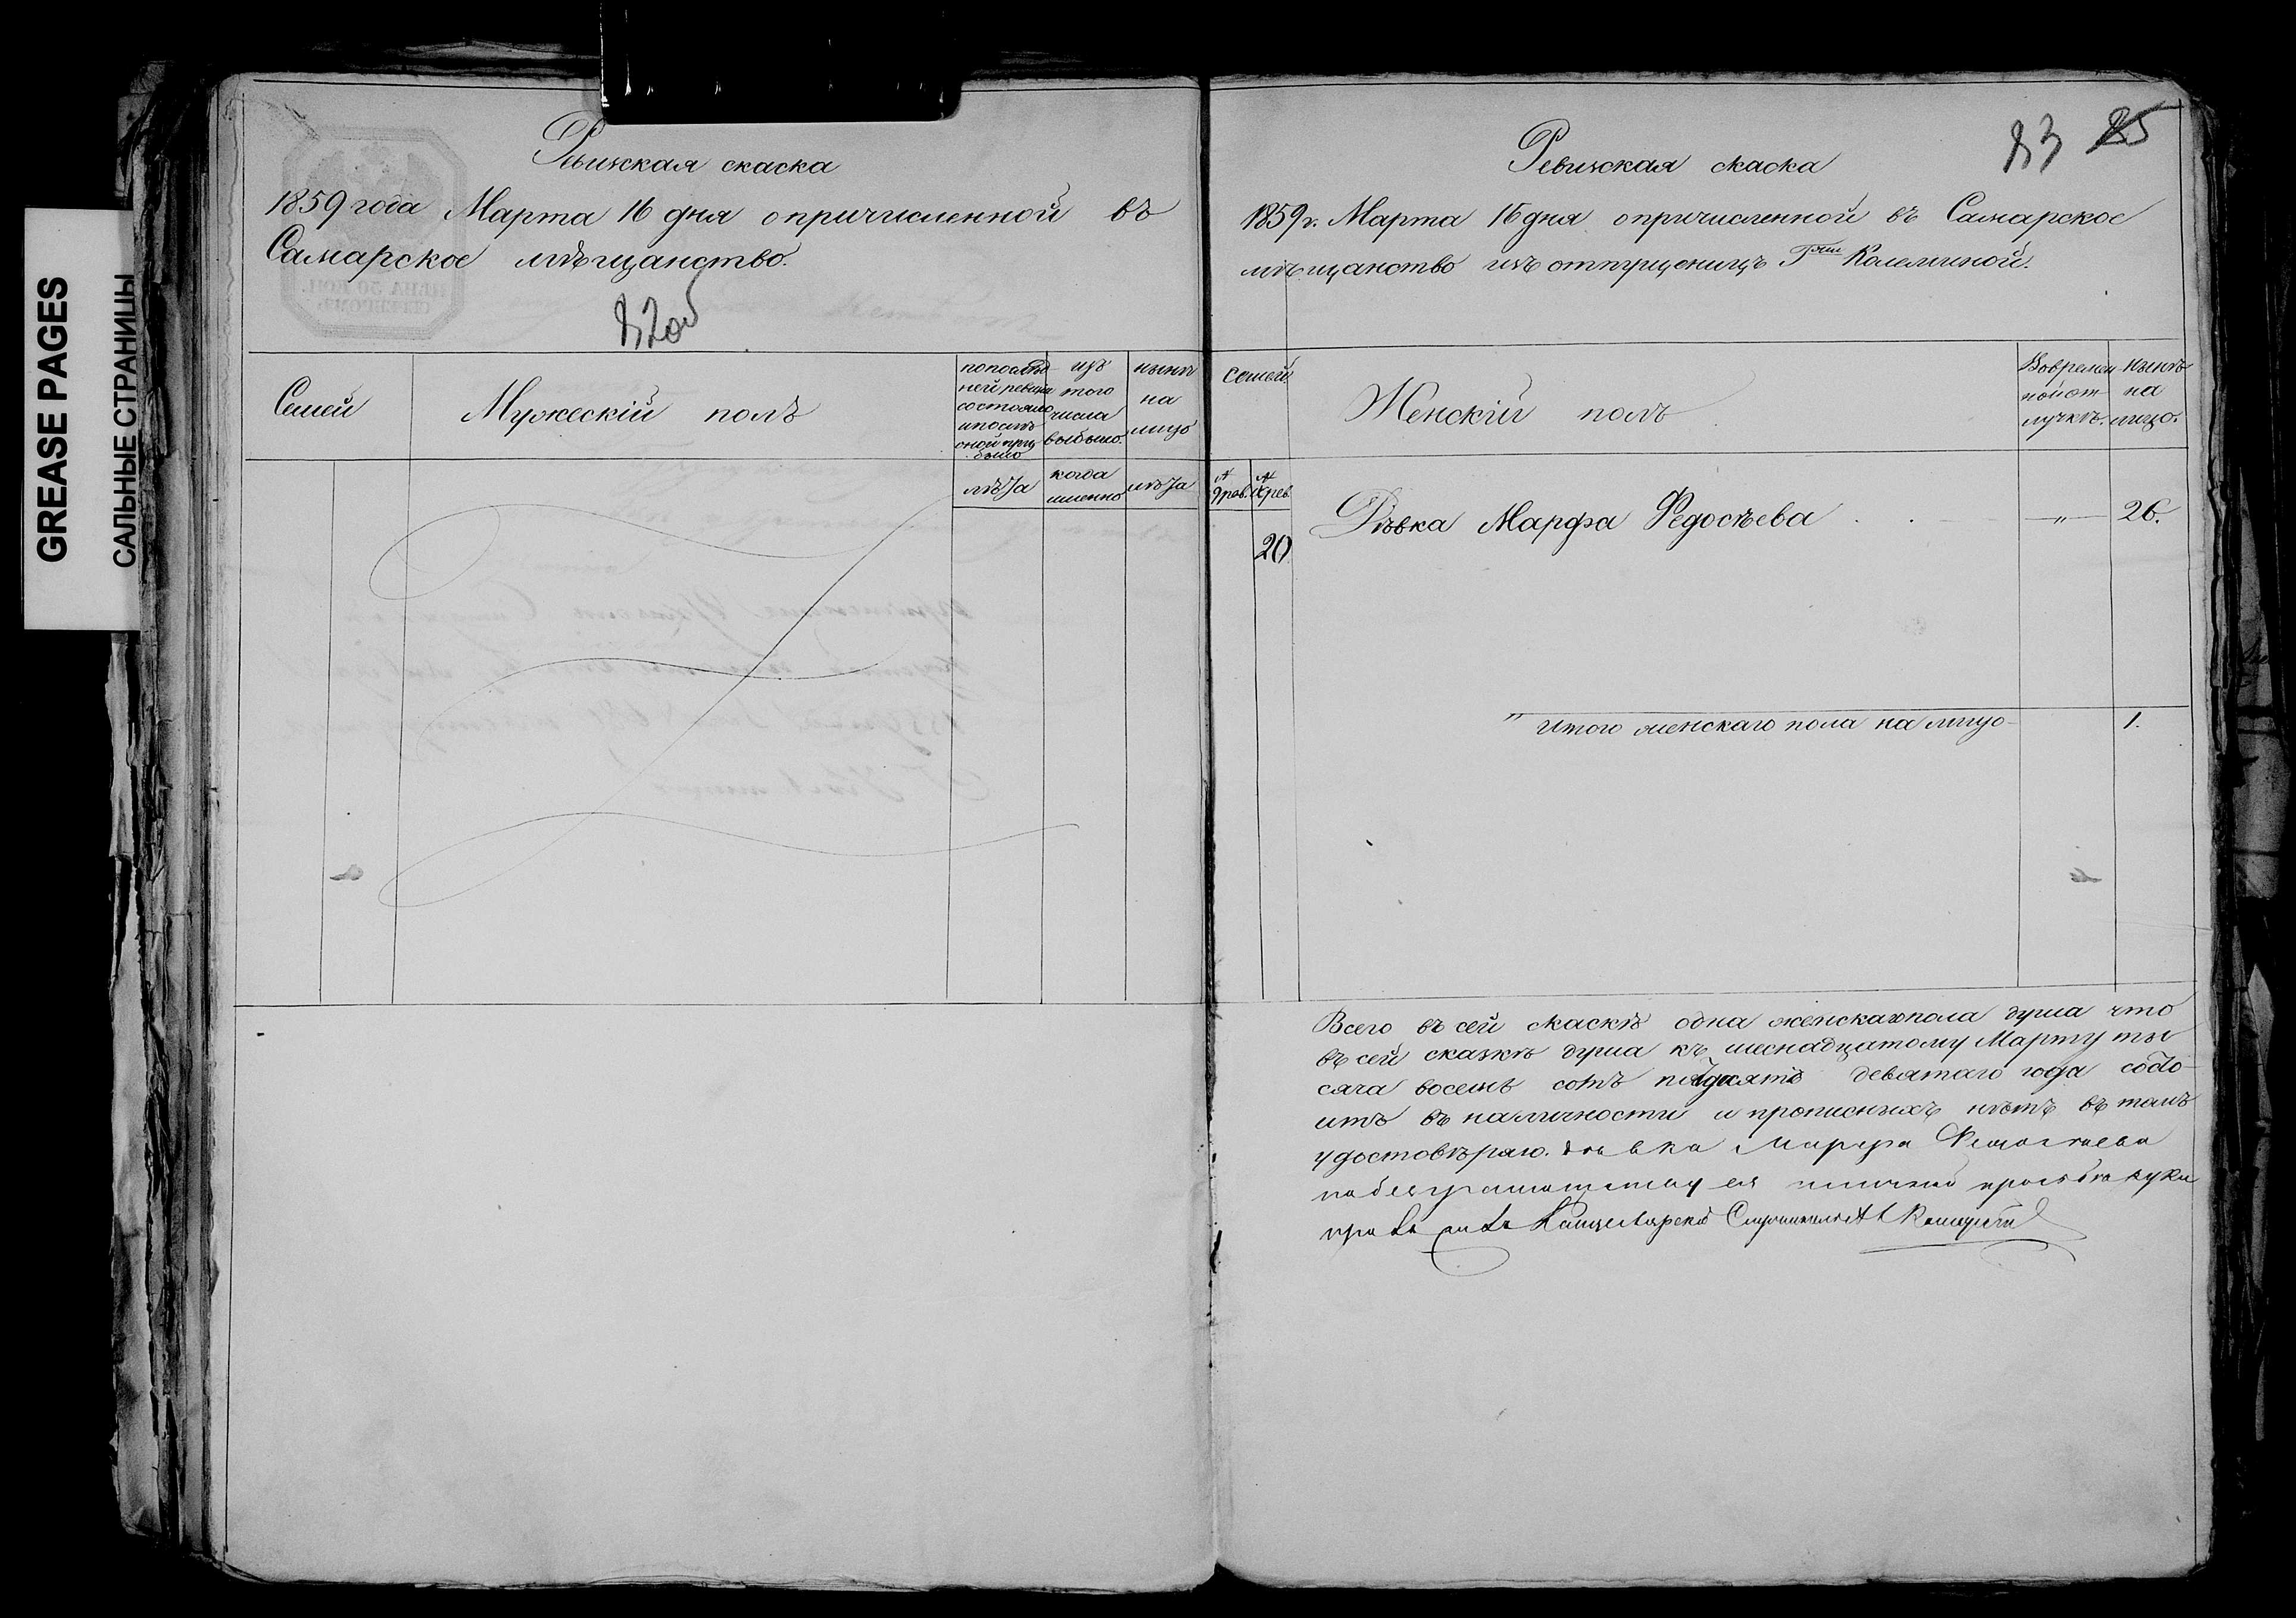 GREASE PAGES
САЛЬНЫЕ СТРАНИЦЫ
Ревижская скаска
1859 года Марта 16 дня о причисленной въ
Самарское мѣщанство.
82об
Семей
Мужескій полъ
по послѣд
ней ревизіи
состояло
и послѣ
оной при
было
изъ
того
числа
выбыло
нынѣ
на
лицо
лѣта
когда
именно
лѣта
83 85
Ревижская скаска
1859 г. Марта 16 дня о причисленной въ Самарское
мѣщанство изъ отпущеницъ Гжи
семей
Женскій полъ
Во времен
ной от
лучкѣ.
нынѣ
на
лицо.
№ 9 рев.
№ 10 рев.
20
Дѣвка Марфа Федосѣева
—„—
26.
„ Итого женскаго пола на лицо
1.
Всего въ сей скаскѣ одна женскаго пола душа что
въ сей сказкѣ душа къ шеснадцатому Марту ты
сяча восемь сотъ пятдесятъ девятаго года состо
итъ въ наличности и прописныхъ нѣтъ въ томъ
удостовѣряю. дѣвка Марфа Федосѣева
по личной прозьбѣ руку
Канцелярскій Служитель